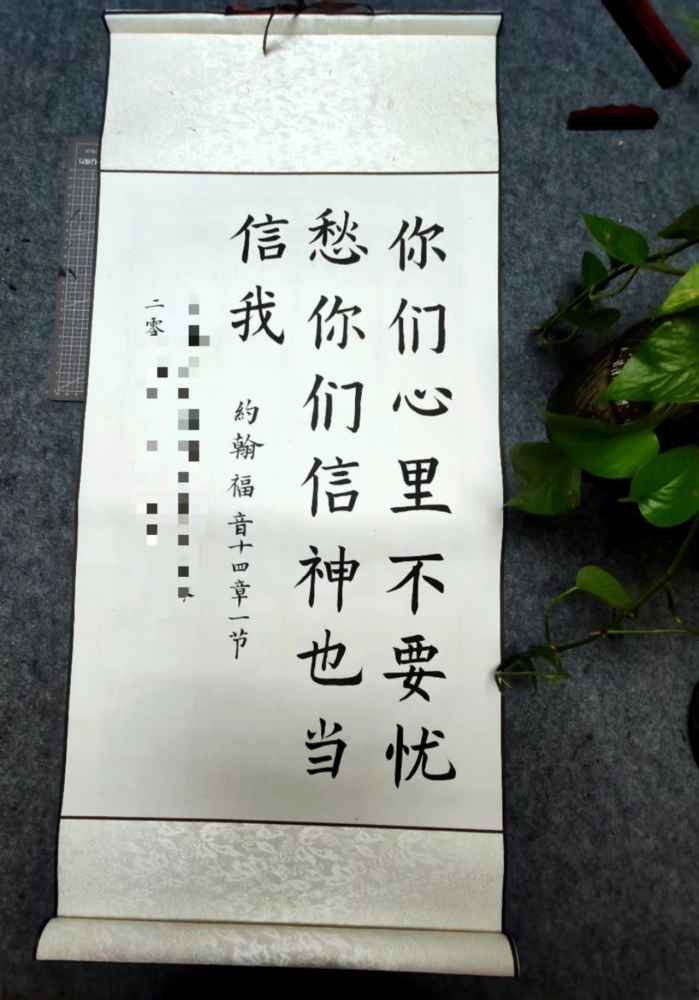 你们心里不要忧
愁你们信神也当
信我
約翰福音十四章一节
二零